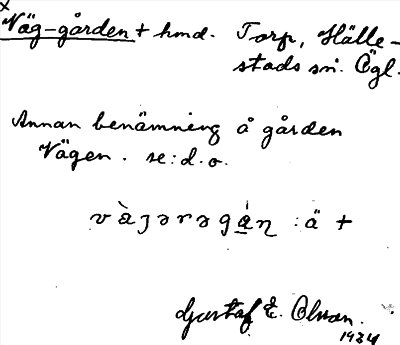 x
Väg-gården + hmd. Torp, Hälle-
stads sn. Ögl.
Annan benämning å gården
Vägen. se: d.o.
vàȷərəgáɳ : ä +
Gustaf E. Olsson.
1934